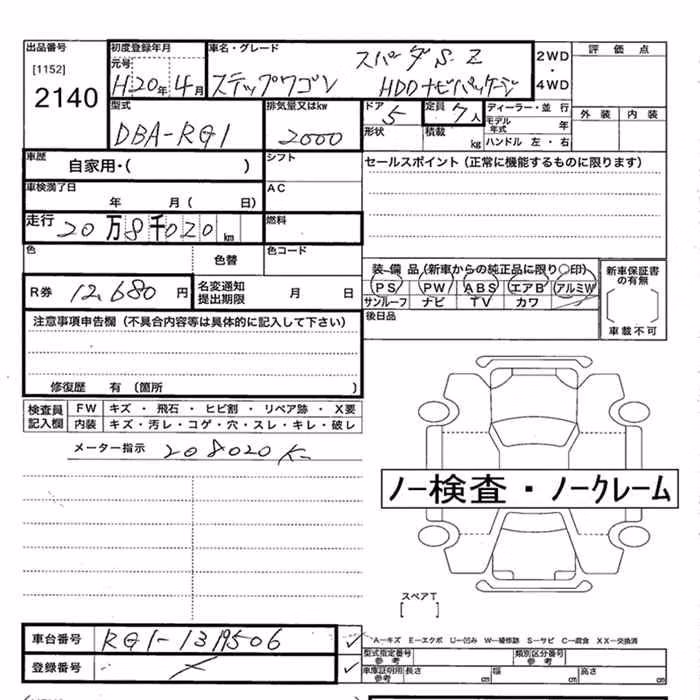 出品番号
[1152]
2140
初度登録年月
元号
H20年4月
車名・グレード
スパーダS.Z
ステップワゴン HDDナビパッケージ
2WD
・
4WD
評価点
外装 内装
型式
DBA-RG1
排気量又はkw
2000
ドア
5
形状
定員
7人
積載
kg
ディーラー・並行
モデル年式 年
ハンドル 左・右
車歴
自家用・( )
シフト
AC
セールスポイント (正常に機能するものに限ります)
車検満了日
年 月( 日)
走行
20万8千020km
燃料
色
色替
色コード
R券 12,680円
名変通知
提出期限
月 日
装備品(新車からの純正品に限り○印)
PS PW ABS エアB アルミW
サンルーフ ナビ TV カワ
後日品
新車保証書
の有無
車載不可
注意事項申告欄 (不具合内容等は具体的に記入して下さい)
修復歴 有 (箇所 )
検査員
記入欄
FW キズ ・ 飛石 ・ ヒビ割 ・ リペア跡 ・ X要
内装 キズ・汚レ・コゲ・穴・スレ・キレ・破レ
メーター指示 208020K
ノー検査・ノークレーム
スペアT
[ ]
車台番号 RG1-1319506
登録番号
A-キズ E-エクボ U-凹み W-補修跡 S-サビ C-腐食 XX-交換済
型式指定番号
参考
類別区分番号
参考
車庫証明用
参考
長さ cm 幅 cm 高さ cm